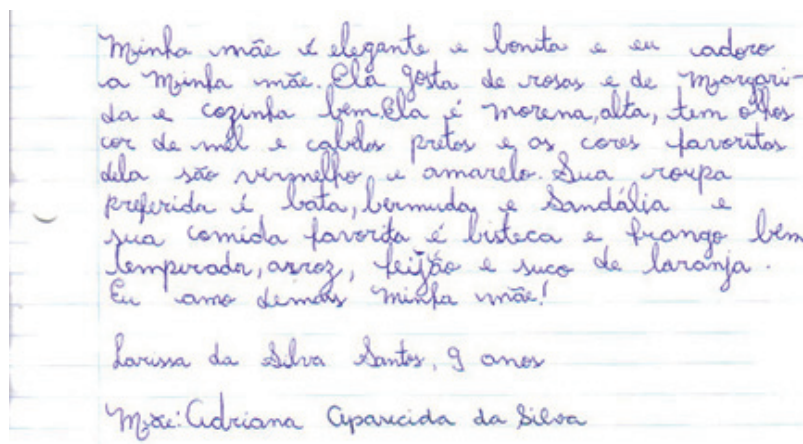 Minha mãe é elegante e bonita e eu adoro
a Minha mãe. Ela gosta de rosas e de Margari-
da e cozinha bem. Ela é morena, alta, tem olhos
cor de mel e cabelos pretos e as cores favoritas
dela são vermelho e amarelo. Sua roupa
preferida é bata, bermuda, e Sandália e
sua comida favorita é bisteca e frango bem
temperador, arroz, feijão e suco de laranja.
Eu amo demais minha mãe!
Larissa da Silva Santos, 9 anos
Mãe: Adriana Aparecida da Silva